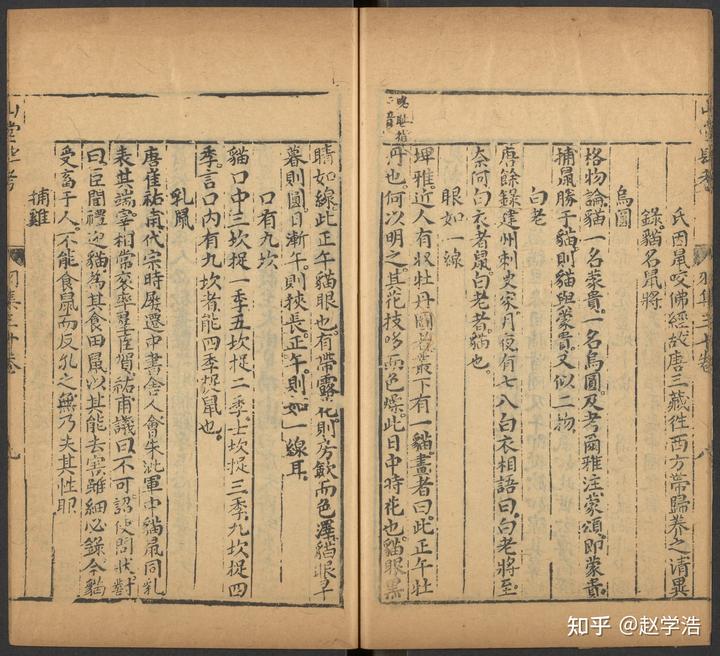 山堂肆考
羽集三十卷
八
氏因鼠咬佛經故唐三藏往西方帶歸養之清異
錄貓名鼠將
烏圓
格物論貓一名蒙貴一名烏圓及考爾雅注蒙頌即蒙貴
捕鼠勝于貓則貓與蒙貴又似二物
白老
唐餘錄建州刺史家月夜有七八白衣相語曰白老將至
奈何白衣者鼠白老者貓也
眼如一線
埤雅近人有收牡丹圖者叢下有一貓畫者曰此正午牡
丹也何以明之其花枝哆而色燥此日中時花也貓眼黑
睛如線此正午貓眼也有帶露花則房歛而色澤貓眼子
暮則圓日漸午則狹長正午則如一線耳
口有九坎
貓口中三坎捉一季五坎捉二季七坎捉三季九坎捉四
季言口內有九坎者能四季捉鼠也
乳鼠
唐崔祐甫代宗時屢遷中書舍人會朱泚軍中貓鼠同乳
表其瑞宰相常袞率羣臣賀祐甫議曰不可詔使問狀對
曰臣聞禮迎貓為其食田鼠以其能去害雖細必錄今貓
受畜于人不能食鼠而反乳之無乃失其性耶
捕雞
山堂肆考
羽集三十卷
九
知乎 @赵学浩